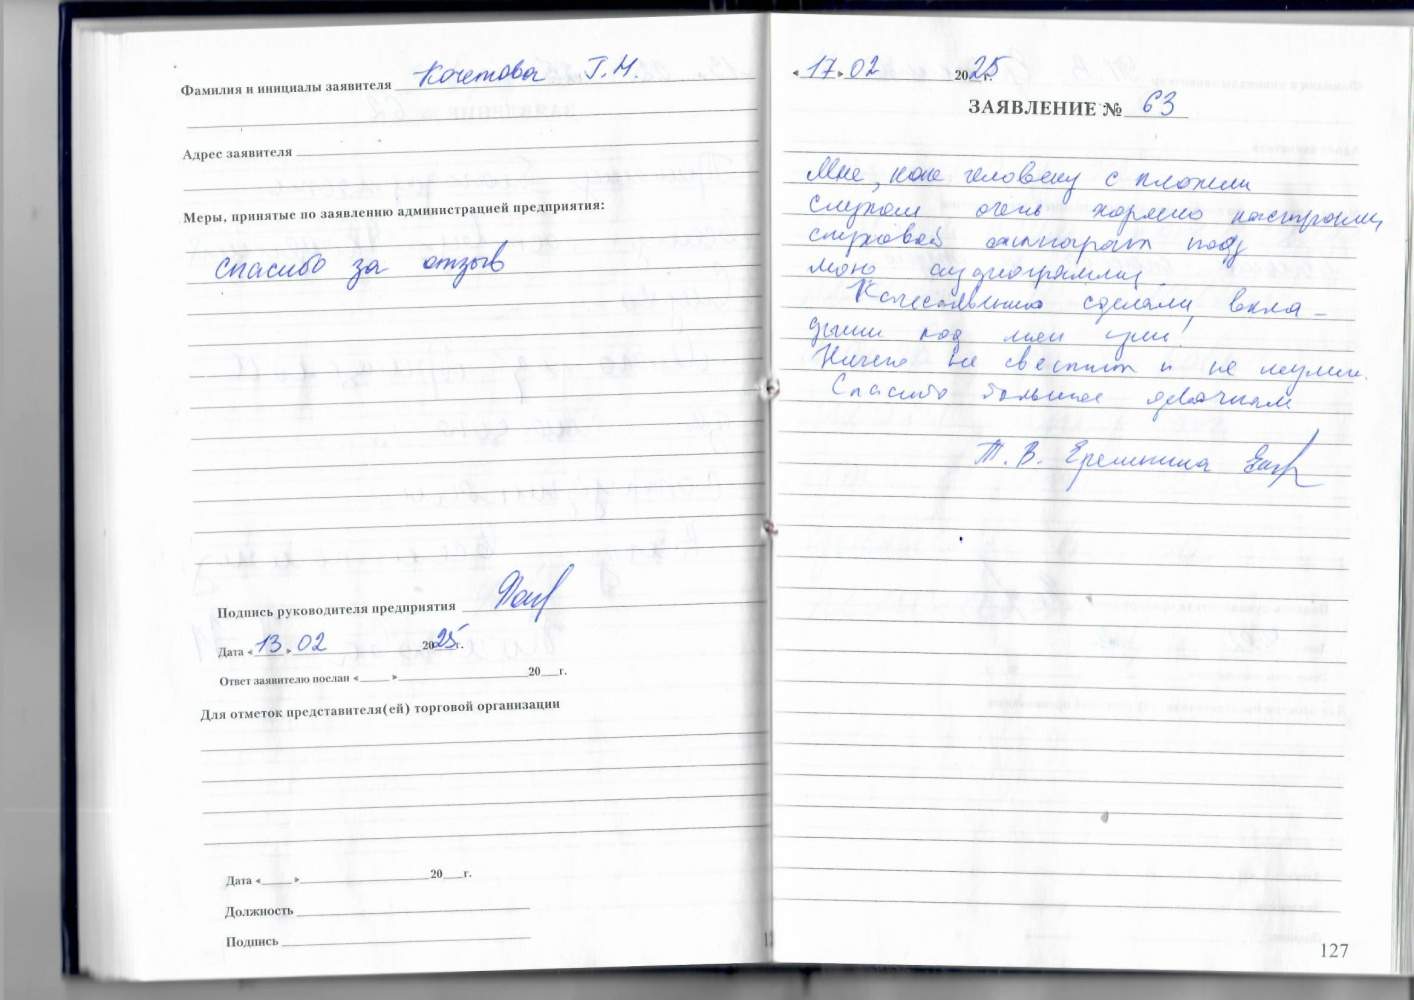 Фамилия и инициалы заявителя Кочетова Г.Н.
Адрес заявителя
Меры, принятые по заявлению администрацией предприятия:
спасибо за отзыв
Подпись руководителя предприятия
Дата «13» 02 2025 г.
Ответ заявителю послан «____» 20___г.
Для отметок представителя(ей) торговой организации
Дата «____» 20___г.
Должность
Подпись
«17» 02 2025 г.
ЗАЯВЛЕНИЕ № 63
Мне, как человеку с плохим
слухом очень хорошо настроили
слуховой аппарат под
мою аудиограмму.
Качественно сделали вкла-
дыши под мои уши!
Ничего не свистит и не шумит.
Спасибо большое девочкам
Т. В. Еремкина
127